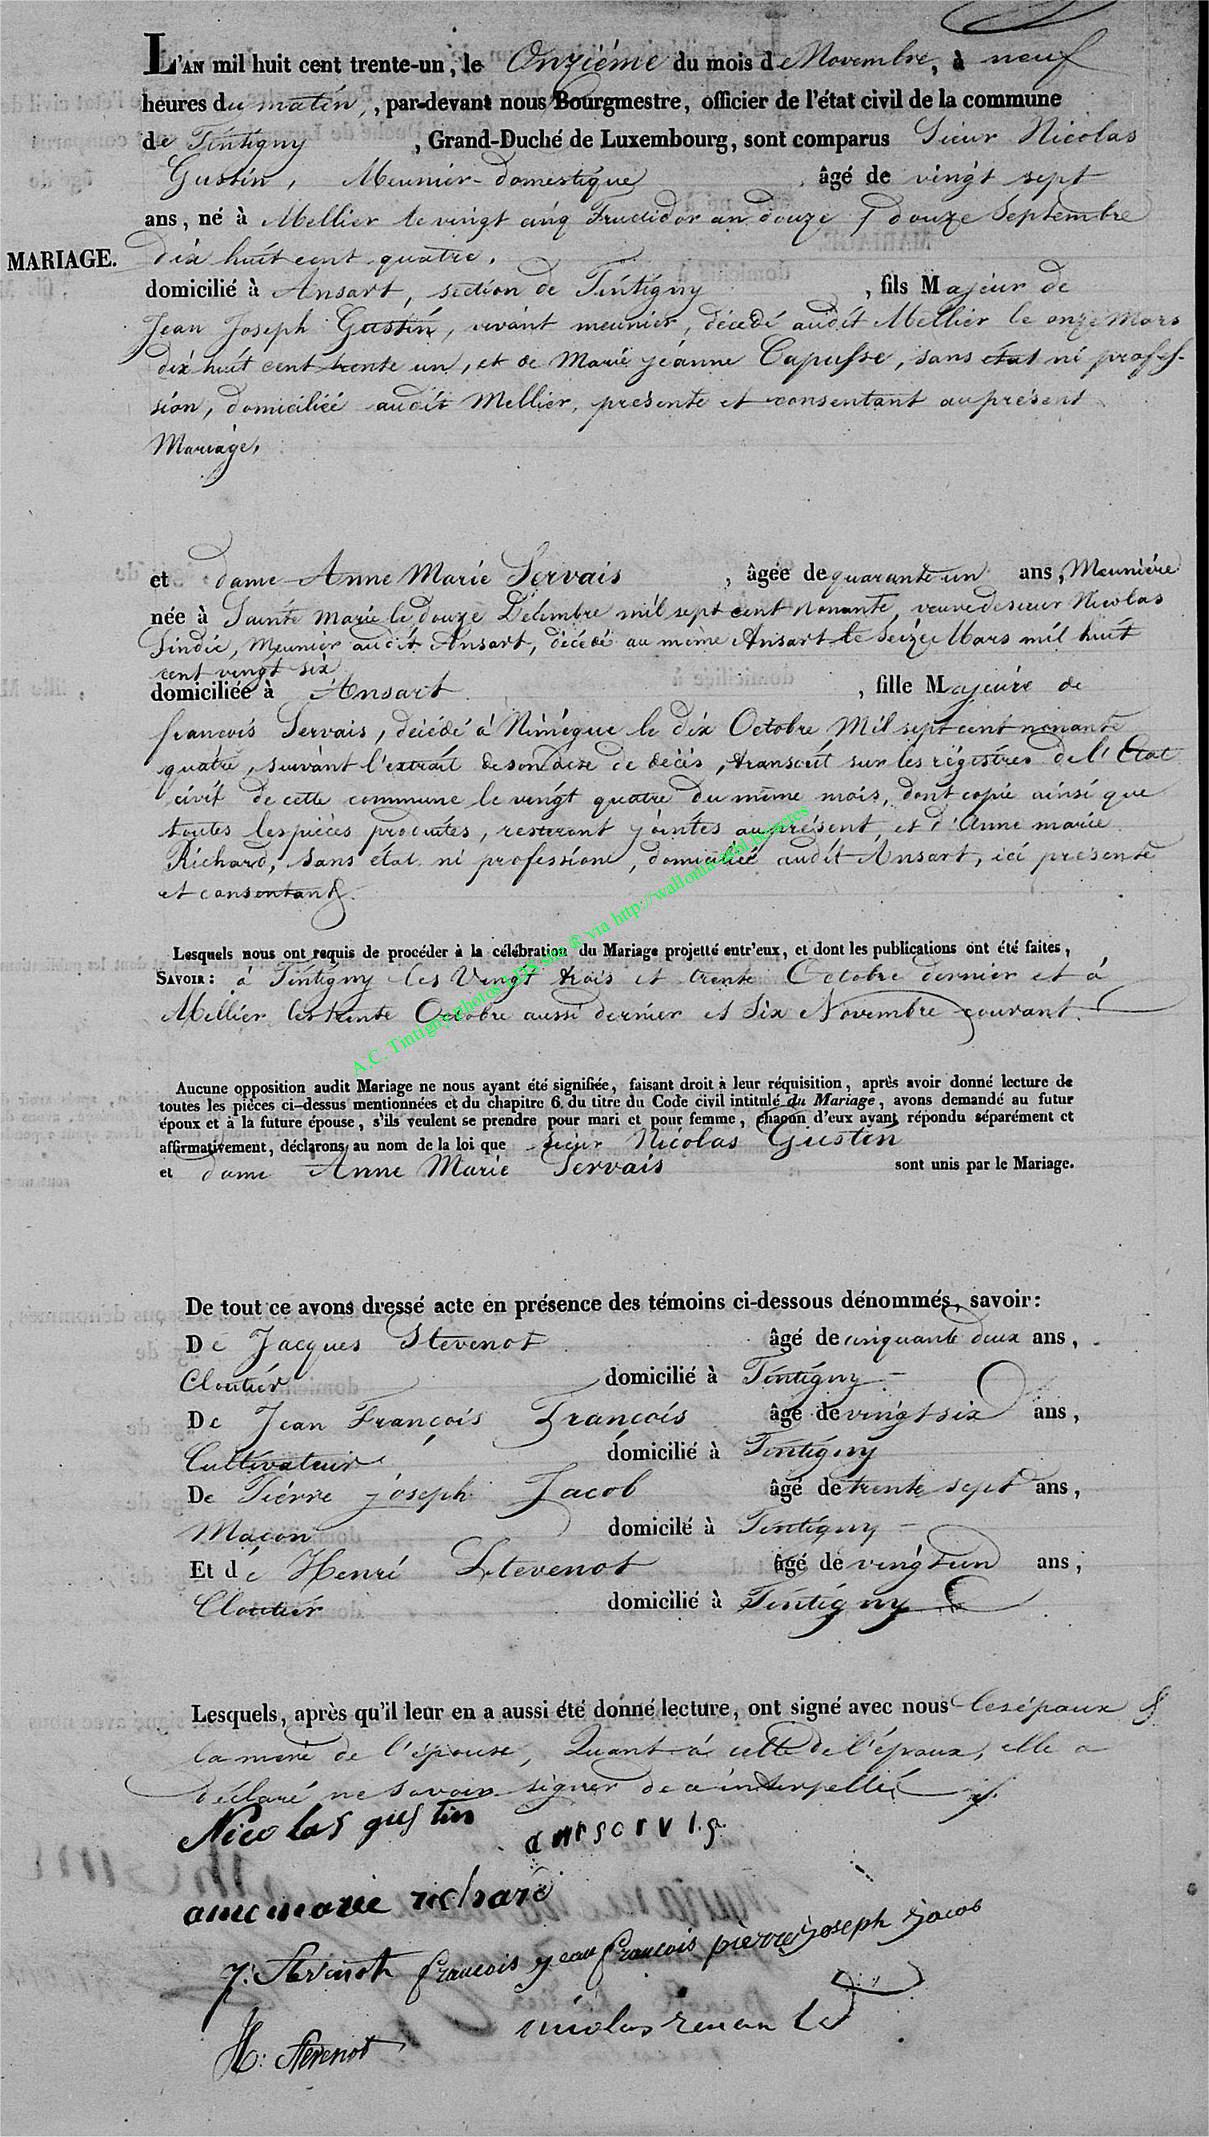 L'AN mil huit cent trente-un, le Onziéme du mois de Novembre, à neuf
heures du matin, par-devant nous Bourgmestre, officier de l'état civil de la commune
de Tintigny, Grand-Duché de Luxembourg, sont comparus Sieur Nicolas
Gustin, Meunier-domestique, âgé de vingt sept
ans, né à Mellier le vingt cinq Fructidor an douze / douze Septembre
MARIAGE. dix huit cent quatre.
domicilié à Ansart, section de Tintigny, fils Majeur de
Jean Joseph Gustin, vivant meunier, décédé audit Mellier le onze Mars
dix huit cent trente un, et de Marie jeanne Capusse, sans état ni profes-
sion, domiciliée audit Mellier, presente et consentant au présent
Mariage,
et dame Anne Marie Servais, âgée de quarante un ans, Meunière
née à Sainte Marie le douze Décembre mil sept cent nonante, veuve de sieur Nicolas
Sindic, Meunier audit Ansart, décédé au même Ansart le Seize Mars mil huit
cent vingt six
domiciliée à Ansart, fille Majeure de
francois Servais, décédé à Nimègue le dix Octobre Mil sept cent nonante
quatre, suivant l'extrait de son acte de décès, transcrit sur les régistres de l'Etat
civil de cette commune le vingt quatre du même mois, dont copie ainsi que
toutes les pièces produites, resteront jointes au présent, et d'Anne marie
Richard, sans état ni profession, domiciliée audit Ansart, ici présente
et consentant.
Lesquels nous ont requis de procéder à la célébration du Mariage projetté entr'eux, et dont les publications ont été faites,
SAVOIR: à Tintigny les Vingt trois et trente Octobre dernier et à
Mellier les trente Octobre aussi dernier et Six Novembre courant.
A.C. Tintigny via http://wallonia
Aucune opposition audit Mariage ne nous ayant été signifiée, faisant droit à leur réquisition, après avoir donné lecture de
toutes les pièces ci-dessus mentionnées et du chapitre 6, du titre du Code civil intitulé du Mariage, avons demandé au futur
époux et à la future épouse, s'ils veulent se prendre pour mari et pour femme, chacun d'eux ayant répondu séparément et
affirmativement, déclarons au nom de la loi que Sieur Nicolas Gustin
et dame Anne Marie Servais sont unis par le Mariage.
De tout ce avons dressé acte en présence des témoins ci-dessous dénommés, savoir:
De Jacques Stevenot âgé de cinquante deux ans,
Cloutier domicilié à Tintigny
De Jean François François âgé de vingt six ans,
Cultivateur domicilié à Tintigny
De Pierre joseph Jacob âgé de trente sept ans,
Maçon domicilé à Tintigny
Et de Henri Stevenot âgé de vingt un ans,
Cloutier domicilié à Tintigny
Lesquels, après qu'il leur en a aussi été donné lecture, ont signé avec nous les époux &
la mere de l'épouse, Quant à celle de l'époux, elle a
déclaré ne savoir signer de ce interpellée
Nicolas gustin
anne marie richard
J: Stevenot francois jean francois pièrre joseph jacob
H: Stevenot nicolas